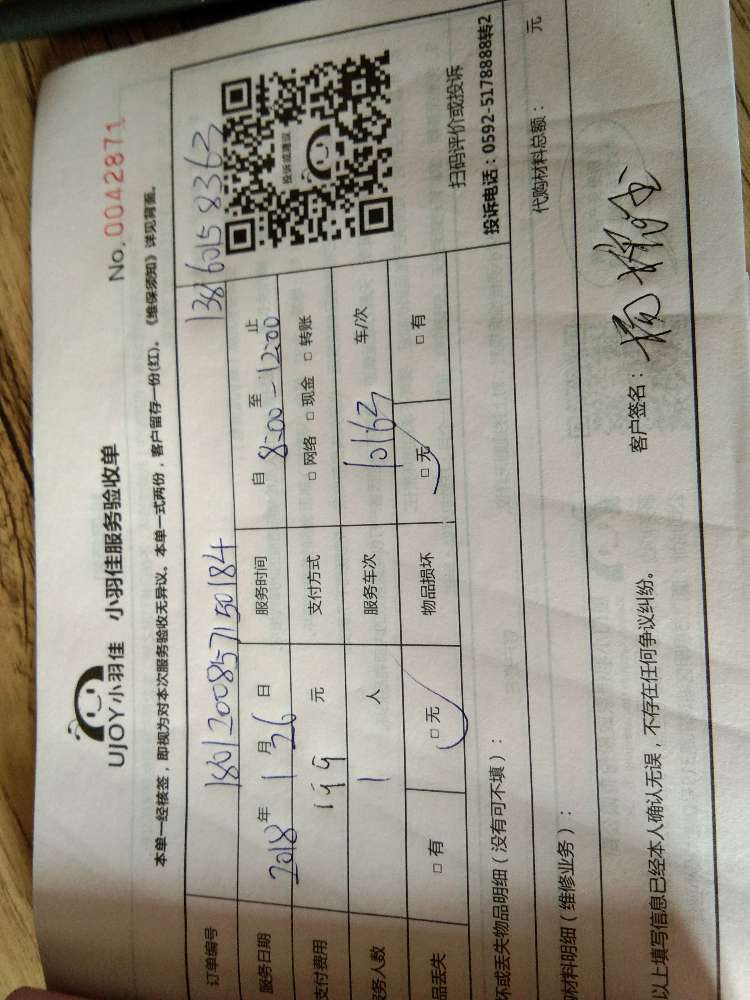 No.0042871
UJOY小羽佳 小羽佳服务验收单
本单一经核签，即视为对本次服务验收无异议。本单一式两份，客户留存一份(红)、《维保须知》详见背面。
订单编号 1801200857150184 13860158363
服务日期 2018年1月26日 服务时间 自 8:00 至 12:00 止
支付费用 199 元 支付方式 □ 网络 □ 现金 □ 转账
务人数 1 人 服务车次 10163 车/次
品丢失 □ 有 □ 无 物品损坏 □ 无 □ 有
投诉或建议
扫码评价或投诉
投诉电话：0592-5178888转2
坏或丢失物品明细（没有可不填）：
材料明细（维修业务）： 代购材料总额： 元
以上填写信息已经本人确认无误，不存在任何争议纠纷。 客户签名： 杨